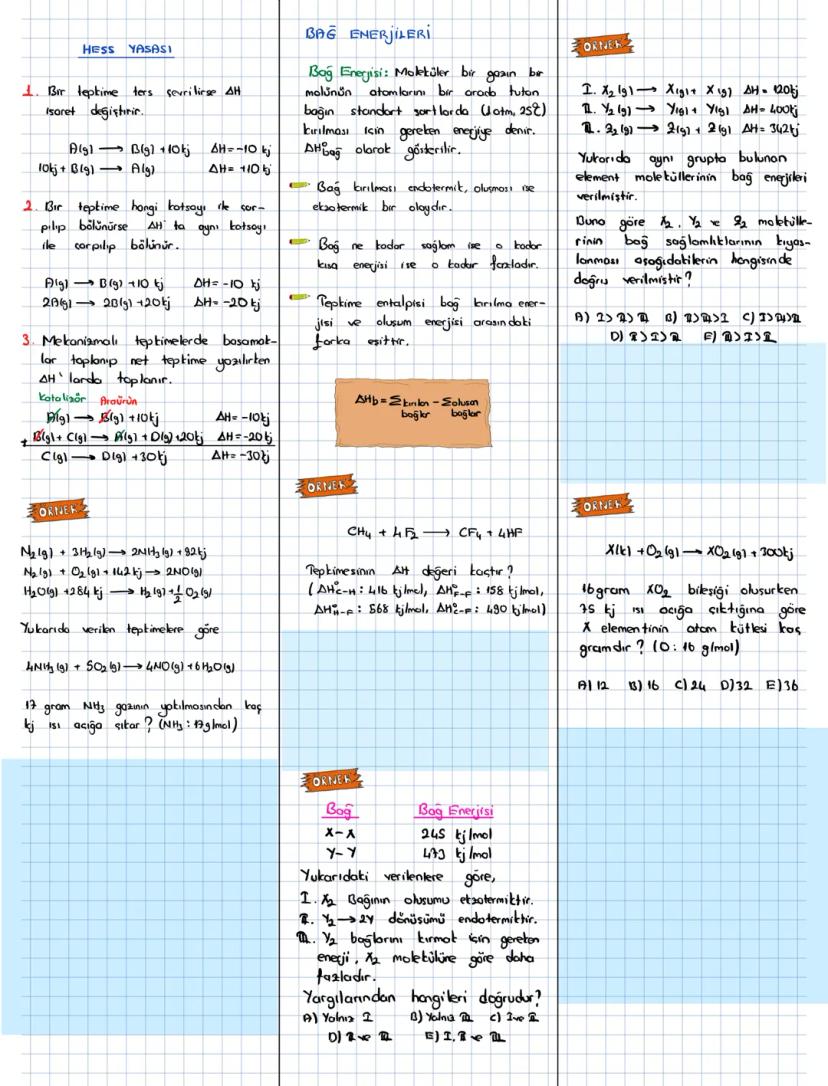 HESS YASASI
1. Bir tepkime ters çevrilirse ΔH
işaret değiştirir.
A(g) → B(g) + 10kj ΔH=-10 kj
10kj + B(g) → A(g) ΔH= +10 kj
2. Bir tepkime hangi katsayı ile çar-
pılıp bölünürse ΔH' ta aynı katsayı
ile çarpılıp bölünür.
A(g) → B(g) +10 kj ΔH= -10 kj
2A(g) → 2B(g) +20kj ΔH= -20 kj
3. Mekanizmalı tepkimelerde basamak-
lar toplanıp net tepkime yazılırken
ΔH' larda toplanır.
Katalizör Araürün
A(g) → B(g) +10kj ΔH= -10kj
+ B(g) + C(g) → A(g) + D(g) +20kj ΔH=-20kj
C(g) → D(g) +30kj ΔH= -30kj
ÖRNEK
N₂(g) + 3H₂(g) → 2NH₃(g) + 92kj
N₂(g) + O₂(g) + 142kj → 2NO(g)
H₂O(g) +284 kj → H₂(g) + 1/2 O₂(g)
Yukarıda verilen tepkimelere göre
4NH₃(g) + 5O₂(g) → 4NO(g) + 6H₂O(g)
17 gram NH₃ gazının yakılmasından kaç
kj ısı açığa çıkar? (NH₃: 17g/mol)
BAĞ ENERJİLERİ
Bağ Enerjisi: Moleküler bir gazın bir
molünün atomlarını bir arada tutan
bağın standart şartlarda (1atm, 25℃)
kırılması için gereken enerjiye denir.
ΔH°bağ olarak gösterilir.
Bağ kırılması endotermik, oluşması ise
ekzotermik bir olaydır.
Bağ ne kadar sağlam ise o kadar
kısa enerjisi ise o kadar fazladır.
Tepkime entalpisi bağ kırılma ener-
jisi ve oluşum enerjisi arasındaki
farka eşittir.
ΔHb = Σkırılan - Σoluşan
bağlar bağlar
ÖRNEK
CH₄ + 4F₂ → CF₄ + 4HF
Tepkimesinin ΔH değeri kaçtır?
(ΔH°C-H: 416 kj/mol, ΔH°F-F: 158 kj/mol,
ΔH°H-F: 568 kj/mol, ΔH°C-F: 490 kj/mol)
ÖRNEK
Bağ Bağ Enerjisi
X-X 245 kj/mol
Y-Y 473 kj/mol
Yukarıdaki verilenlere göre,
I. X₂ Bağının oluşumu ekzotermiktir.
II. Y₂ → 2Y dönüşümü endotermiktir.
III. Y₂ bağlarını kırmak için gereken
enerji, X₂ molekülüne göre daha
fazladır.
Yargılarından hangileri doğrudur?
A) Yalnız I B) Yalnız III C) I ve II
D) II ve III E) I, II ve III
ÖRNEK
I. X₂(g) → X(g) + X(g) ΔH= 120kj
II. Y₂(g) → Y(g) + Y(g) ΔH= 400kj
III. Q₂(g) → Q(g) + Q(g) ΔH= 342kj
Yukarıda aynı grupta bulunan
element moleküllerinin bağ enerjileri
verilmiştir.
Buna göre X₂, Y₂ ve Q₂ molekülle-
rinin bağ sağlamlıklarının kıyas-
lanması aşağıdakilerin hangisinde
doğru verilmiştir?
ÖRNEK
X(k) + O₂(g) → XO₂(g) + 300kj
16gram XO₂ bileşiği oluşurken
75 kj ısı açığa çıktığına göre
X elementinin atom kütlesi kaç
gramdır? (O: 16 g/mol)
A) 12 B) 16 C) 24 D) 32 E) 36